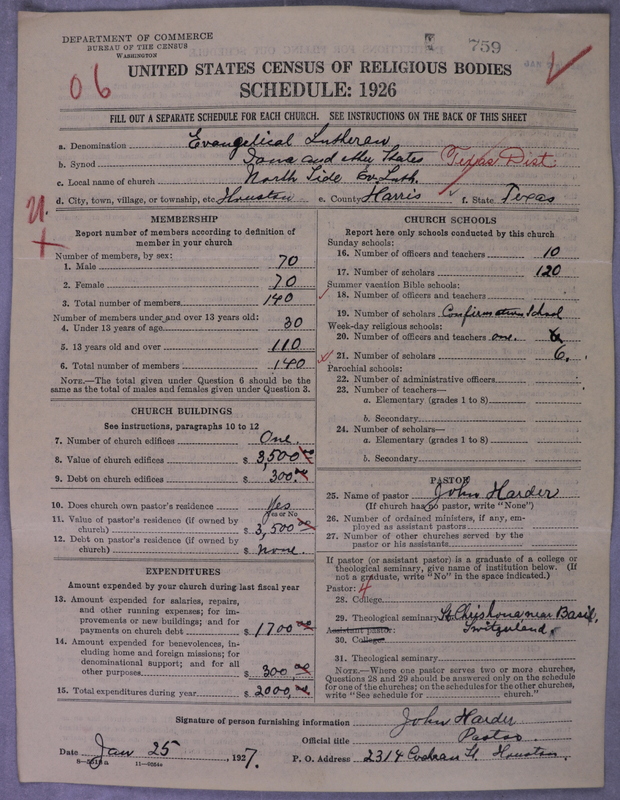 DEPARTMENT OF COMMERCE
BUREAU OF THE CENSUS
WASHINGTON
759
06
UNITED STATES CENSUS OF RELIGIOUS BODIES
SCHEDULE: 1926
FILL OUT A SEPARATE SCHEDULE FOR EACH CHURCH. SEE INSTRUCTIONS ON THE BACK OF THIS SHEET
a. Denomination Evangelical Lutheran
b. Synod Iowa and other States Texas Dist.
c. Local name of church North Side Ev. Luth.
d. City, town, village, or township, etc. Houston e. County Harris f. State Texas
MEMBERSHIP
Report number of members according to definition of
member in your church
Number of members, by sex:
1. Male 70
2. Female 70
3. Total number of members 140
Number of members under and over 13 years old:
4. Under 13 years of age 30
5. 13 years old and over 110
6. Total number of members 140
NOTE.—The total given under Question 6 should be
same as the total of males and females given under Question 3.
CHURCH BUILDINGS
See instructions, paragraphs 10 to 12
7. Number of church edifices One.
8. Value of church edifices $ 3,500.00
9. Debt on church edifices $ 300.00
10. Does church own pastor's residence Yes
Yes or No
11. Value of pastor's residence (if owned by
church) $ 3,500.00
12. Debt on pastor's residence (if owned by
church) $ None.
EXPENDITURES
Amount expended by your church during last fiscal year
13. Amount expended for salaries, repairs,
and other running expenses; for im-
provements or new buildings; and for
payments on church debt $ 1700.00
14. Amount expended for benevolences, in-
cluding home and foreign missions; for
denominational support; and for all
other purposes $ 300.00
15. Total expenditures during year $ 2000.00
CHURCH SCHOOLS
Report here only schools conducted by this church
Sunday schools:
16. Number of officers and teachers 10
17. Number of scholars 120
Summer vacation Bible schools:
18. Number of officers and teachers
19. Number of scholars Confirmation School
Week-day religious schools:
20. Number of officers and teachers one.
21. Number of scholars 6.
Parochial schools:
22. Number of administrative officers
23. Number of teachers—
a. Elementary (grades 1 to 8)
b. Secondary
24. Number of scholars—
a. Elementary (grades 1 to 8)
b. Secondary
PASTOR
25. Name of pastor John Harder
(If church has no pastor, write "None")
26. Number of ordained ministers, if any, em-
ployed as assistant pastors
27. Number of other churches served by the
pastor or his assistants
If pastor (or assistant pastor) is a graduate of a college or
theological seminary, give name of institution below. (If
not a graduate, write "No" in the space indicated.)
Pastor: 4
28. College
29. Theological seminary St. Chrishona near Basil,
Assistant pastor: Switzerland.
30. College
31. Theological seminary
NOTE.—Where one pastor serves two or more churches,
Questions 28 and 29 should be answered only on the schedule
for one of the churches; on the schedules for the other churches,
write "See schedule for church."
Signature of person furnishing information John Harder
Official title Pastor.
Date Jan 25, 1927. P. O. Address 2314 Cochran St. Houston.
11—9264